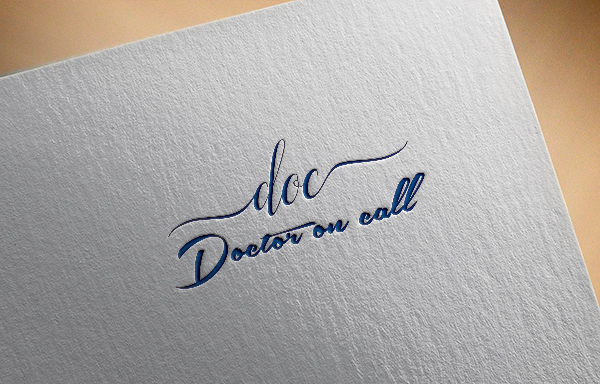 doc
Doctor on call